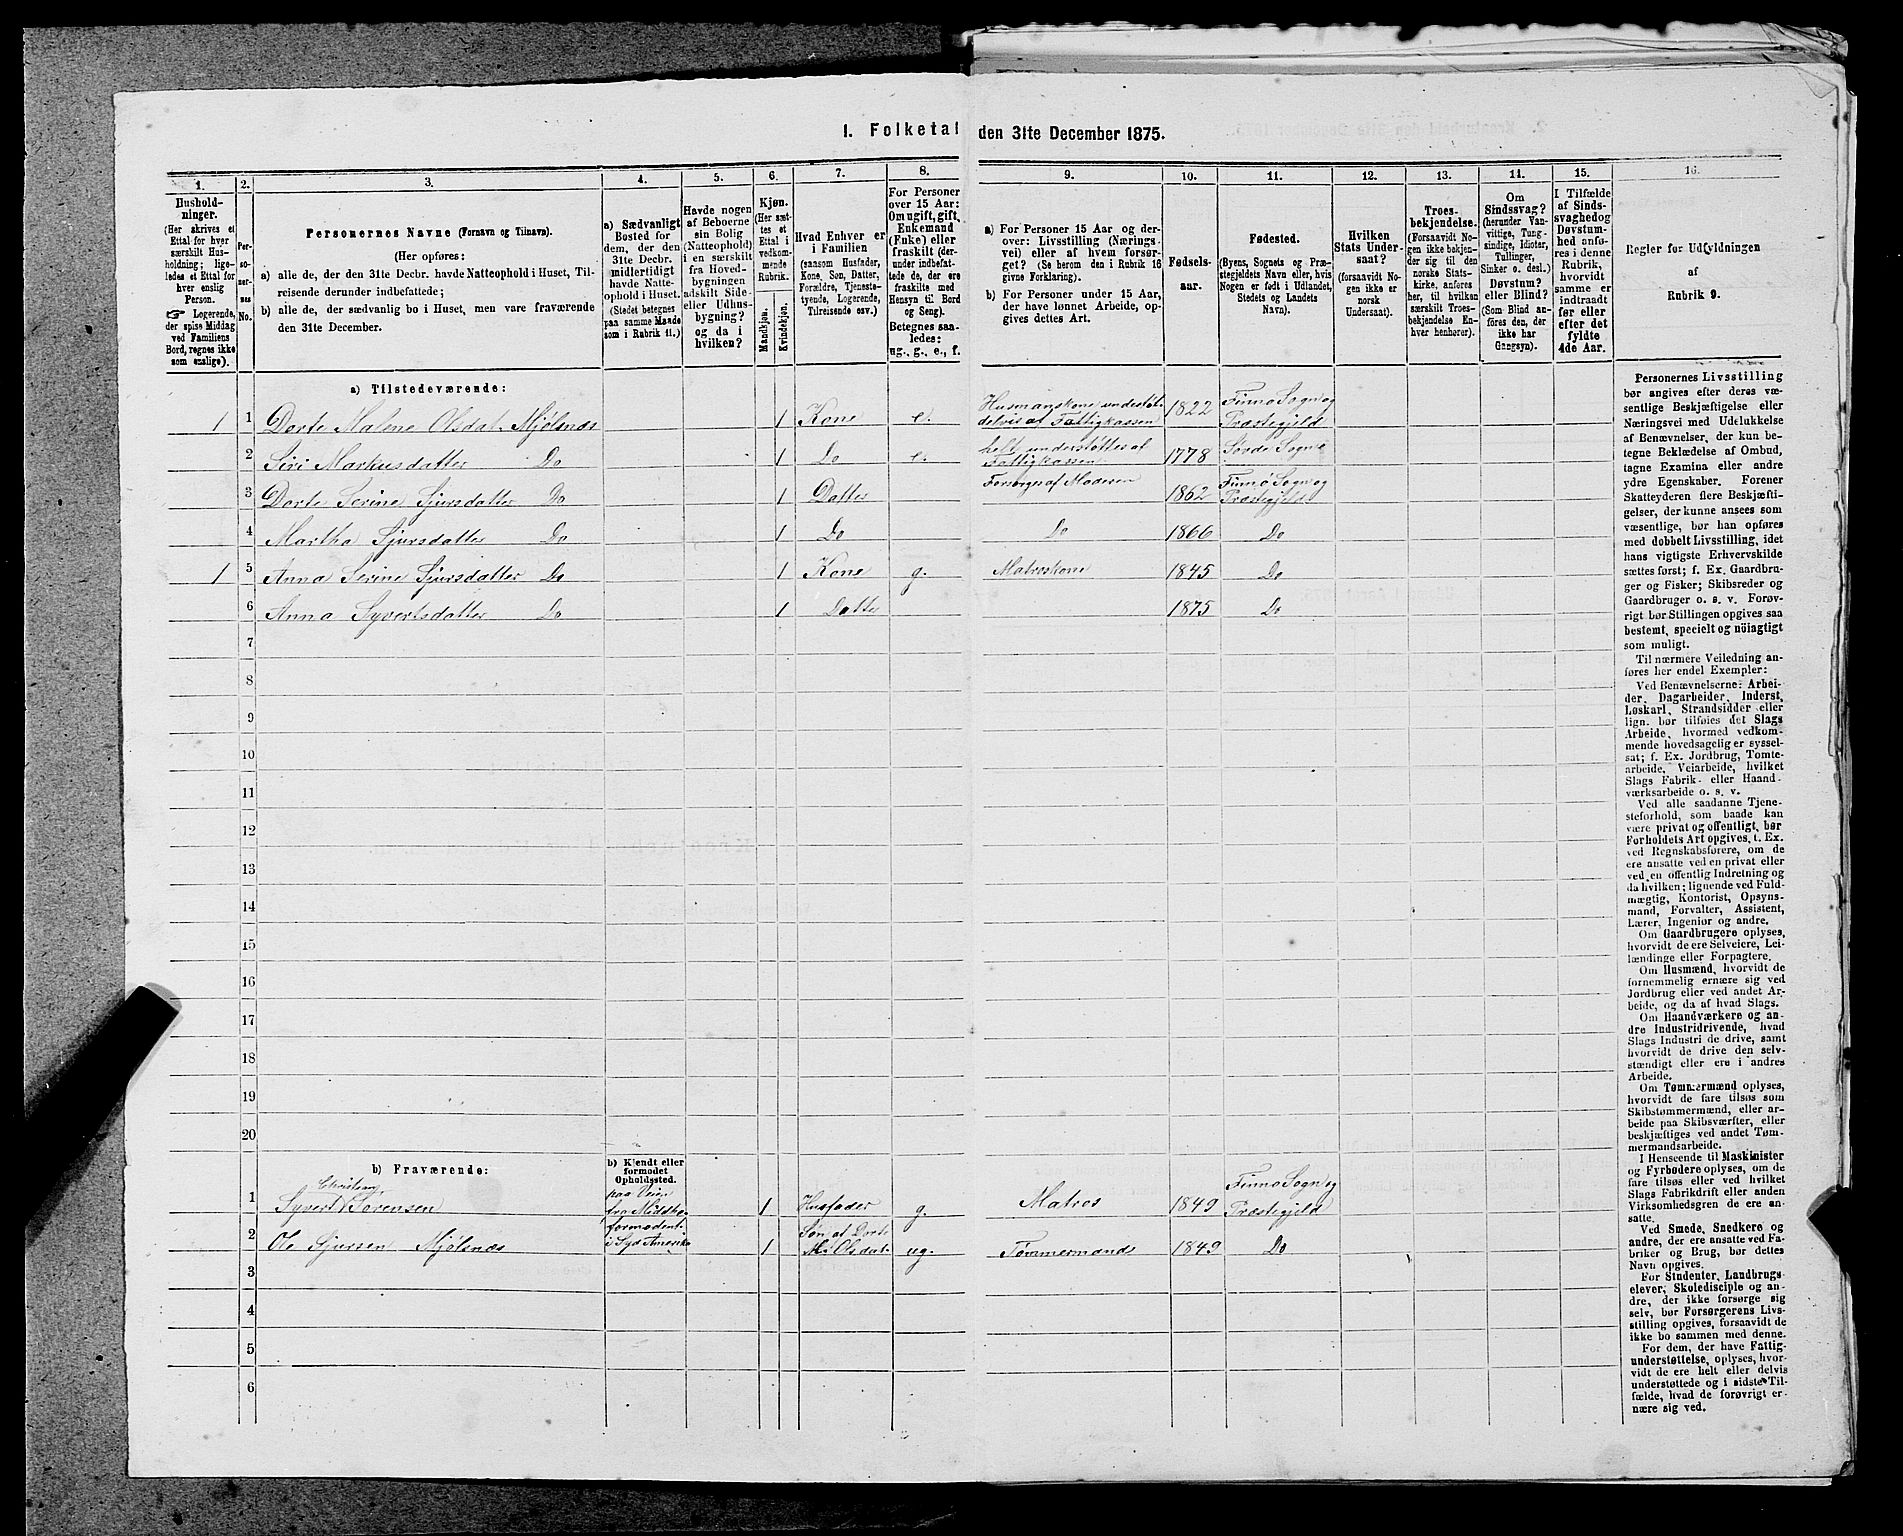 1. Folketal den 31te December 1875.
1. 2. 3. 4. 5. 6. 7. 8. 9. 10. 11. 12. 13. 14. 15. 16.
Hushold-
ninger.
(Her skrives et
Ettal for hver
særskilt Hus-
holdning; lige-
ledes et Ettal for
hver enslig
Person.
☞ Logerende,
der spise Middag
ved Familiens
Bord, regnes ikke
som enslige).
Per-
so-
ner-
nes
No.
Personernes Navne (Fornavn og Tilnavn).
(Her opføres:
a) alle de, der den 31te Decbr. havde Natteophold i Huset, Til-
reisende derunder indbefattede;
b) alle de, der sædvanlig bo i Huset, men vare fraværende
den 31te December.
a) Sædvanligt
Bosted for
dem, der den
31te Decbr.
midlertidigt
havde Natte-
ophold i Huset.
(Stedet betegnes
paa samme Maade
som i Rubrik 11.)
Havde nogen
af Beboerne
sin Bolig
(Natteophold)
i en særskilt
fra Hoved-
bygningen
adskilt Side-
eller Udhus-
bygning?
og da i
hvilken?
Kjøn.
(Her sæt-
tes et
Ettal i
vedkom-
mende
Rubrik.
Mandkjøn.
Kvindekjøn.
Hvad Enhver er
i Familien
(saasom Husfader,
Kone, Søn, Datter,
Forældre, Tjeneste-
tyende, Logerende,
Tilreisende osv.)
For Personer
over 15 Aar:
Om ugift, gift,
Enkemand
(Enke) eller
fraskilt (der-
under indbefat-
tede de, der ere
fraskilte med
Hensyn til Bord
og Seng).
Betegnes saa-
ledes:
ug., g., e., f.
a) For Personer 15 Aar og der-
over: Livsstilling (Nærings-
vei) eller af hvem forsør-
get? (Se herom den i Rubrik 16
givne Forklaring).
b) For Personer under 15 Aar,
der have lønnet Arbeide, op-
gives dettes Art.
Fødsels-
aar.
Fødested.
(Byens, Sognets og Præ-
stegjeldets Navn eller, hvis
Nogen er født i Udlandet,
Stedets og Landets
Navn).
Hvilken
Stats Under-
saat?
(forsaavidt No-
gen ikke er
norsk
Undersaat).
Troes-
bekjendelse.
(Forsaavidt No-
gen ikke bekjen-
der sig til den
norske Stats-
kirke, anføres
her, til hvilken
særskilt Troes-
bekjendelse En-
hver henhører).
Om
Sindssvag?
(herunder Van-
vittige, Tung-
sindige, Idioter,
Tullinger,
Sinker o. desl.)
Døvstum?
eller Blind?
(Som Blind an-
føres den, der
ikke har
Gangsyn).
I Tilfælde
af Sinds-
svaghed og
Døvstum-
hed anfø-
res i denne
Rubrik,
hvorvidt
samme er
indtraadt
før eller
efter det
fyldte
4de Aar.
Regler for Udfyldningen
af
Rubrik 9.
a) Tilstedeværende:
1 1 Dorte Malene Olsdat. Mjølsnæs 1 Kone e. Husmanskone understøt- delvis af Fattigkassen 1822 Finnø Sogn og Præstegjeld
2 Siri Markusdatter Do 1 Do e. helt understøttes af Fattigkassen 1778 Sogn
3 Dorte Serine Sjursdatter Do 1 Datter Forsørges af Moderen 1862 Finnø Sogn og Præstegjeld
4 Martha Sjursdatter Do 1 Do Do 1866 Do
1 5 Anna Serine Sjursdatter Do 1 Kone g. Matroskone 1845 Do
6 Anna Syvertsdatter Do 1 Datter 1875 Do
7
8
9
10
11
12
13
14
15
16
17
18
19
20
b) Fraværende:
b) Kjendt eller
formodet
Opholdssted.
1 Syvert Christian Sørensen paa Veien fra 1 Husfader g. Matros 1849 Finnø Sogn og Præstegjeld
2 Ole Sjursen Mjølsnæs formodentl. i Syd Amerika 1 Søn af Dorte M. Olsdat. ug. Tømmermands 1849 Do
3
4
5
6
Personernes Livsstilling
bør angives efter deres væ-
sentlige Beskjæftigelse eller
Næringsvei med Udelukkelse
af Benævnelser, der kun be-
tegne Beklædelse af Ombud,
tagne Examina eller andre
ydre Egenskaber. Forener
Skatteyderen flere Beskjæfti-
gelser, der kunne ansees som
væsentlige, bør han opføres
med dobbelt Livsstilling, idet
hans vigtigste Erhvervskilde
sættes først; f. Ex. Gaardbru-
ger og Fisker; Skibsreder og
Gaardbruger o. s. v. Forøv-
rigt bør Stillingen opgives saa
bestemt, specielt og nöiagtigt
som muligt.
Til nærmere Veiledning an-
føres her endel Exempler:
Ved Benævnelserne: Arbei-
der, Dagarbeider, Inderst,
Løskarl, Strandsidder eller
lign. bør tilføies det Slags
Arbeide, hvormed vedkom-
mende hovedsagelig er syssel-
sat; f. Ex. Jordbrug, Tomte-
arbeide, Veiarbeide, hvilket
Slags Fabrik- eller Haand-
værksarbeide o. s. v.
Ved alle saadanne Tjene-
steforhold, som baade kan
være privat og offentligt, bør
Forholdets Art opgives, t. Ex.
ved Regnskabsførere, om de
ere ansatte ved en privat eller
ved en offentlig Indretning og
da hvilken; lignende ved Fuld-
mægtig, Kontorist, Opsyns-
mand, Forvalter, Assistent,
Lærer, Ingeniør og andre.
Om Gaardbrugere oplyses,
hvorvidt de ere Selveiere, Lei-
lændinge eller Forpagtere.
Om Husmænd, hvorvidt de
fornemmelig ernære sig ved
Jordbrug eller ved andet Ar-
beide, og da af hvad Slags.
Om Haandværkere og an-
dre Industridrivende, hvad
Slags Industri de drive, samt
hvorvidt de drive den selv-
stændigt eller ere i andres
Arbeide.
Om Tømmermænd oplyses,
hvorvidt de fare tilsøs som
Skibstømmermænd, eller ar-
beide paa Skibsværfter, eller
beskjæftiges ved andet Tøm-
mermandsarbeide.
I Henseende til Maskinister
og Fyrbødere oplyses, om de
fare tilsøs eller ved hvilket
Slags Fabrikdrift eller anden
Virksomhedsgren de ere an-
satte.
Ved Smede, Snedkere og
andre, der ere ansatte ved Fa-
briker og Brug, bør dettes
Navn opgives.
For Studenter, Landbrugs-
elever, Skoledisciple og an-
dre, der ikke forsørge sig
selv, bør Forsørgerens Livs-
stilling opgives, forsaavidt de
ikke bo sammen med denne.
For dem, der have Fattig-
understøttelse, oplyses, hvor-
vidt de ere helt eller delvis
understøttede og i sidste Til-
fælde, hvad de forøvrigt er-
nære sig ved.